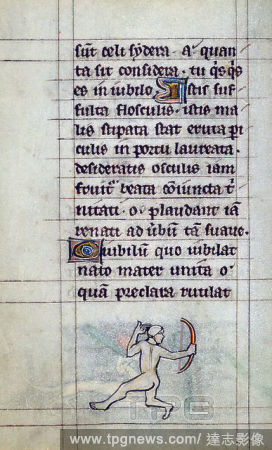 sūt celi sydera · a· quan
ta sit considera · tu q̄sq̄s
es in iubilo Istis suf
fulta flosculis · istis ma
lis stipata stat eruta p̄i
culis in portu laureata ·
desideratis osculis iam
fruit᷑ beata cōiuncta t᷑
nitati · o· plaudant iā
renati ad ūbū tā suaue ·
O iubilū quo iubilat
nato mater unita o·
quā preclara rutilat
TPG
www.tpgnews.com/ 達志影像